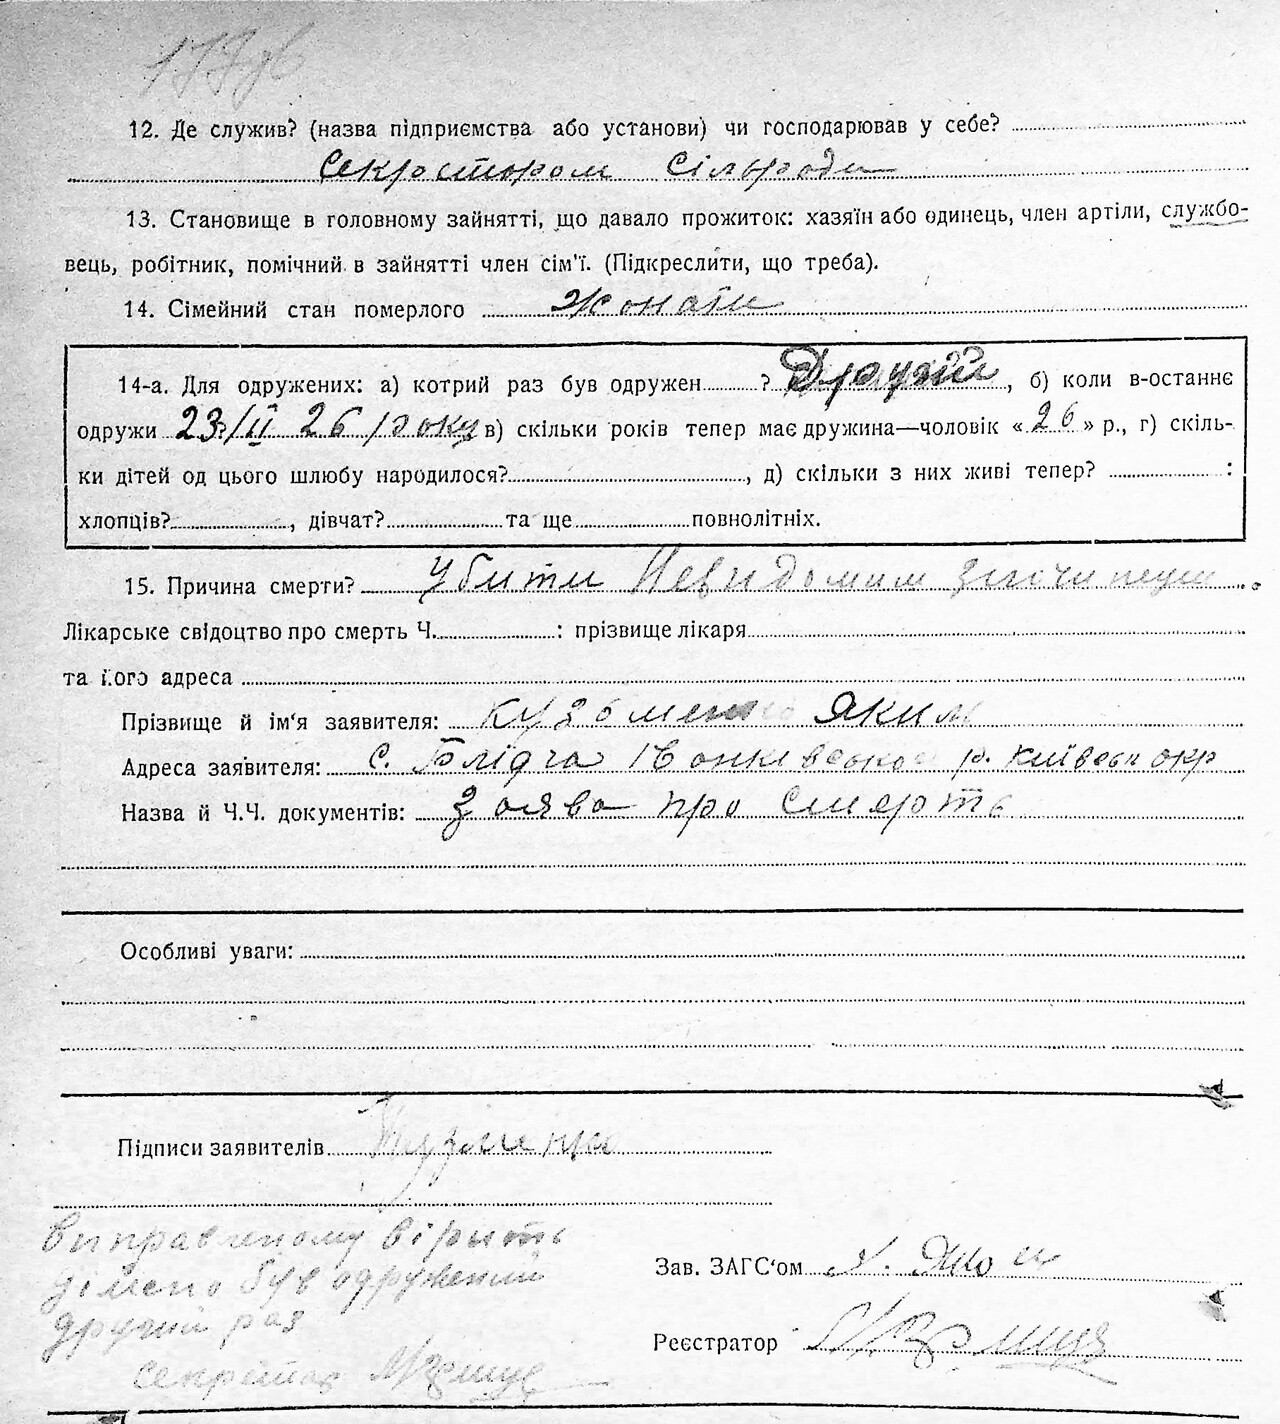 12. Де служив? (назва підприємства або установи) чи господарював у себе?
Секростором Сільради
13. Становище в головному зайнятті, що давало прожиток: хазяїн або одинець, член артіли, службо-
вець, робітник, помічний в зайнятті член сім'ї. (Підкреслити, що треба).
14. Сімейний стан померлого Жонати
14-а. Для одружених: а) котрий раз був одружен ? Другий, б) коли в-останнє
одружи 23/II 26 року в) скільки років тепер має дружина—чоловік «26» р., г) скіль-
ки дітей од цього шлюбу народилося? , д) скільки з них живі тепер? :
хлопців? , дівчат? та ще повнолітніх.
15. Причина смерти? Убити Невидомим злочинцем
Лікарське свідоцтво про смерть Ч. : прізвище лікаря
та його адреса
Прізвище й ім'я заявителя: Кузьменко Яким
Адреса заявителя: с. Блідча Іванківського р. Київськ окр
Назва й Ч.Ч. документів: Заява про смерть
Особливі уваги:
Підписи заявителів
Виправленому вірить
імено був одружений
другий раз
Зав. ЗАГС'ом
Реєстратор
секретар